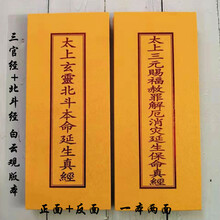 三官经+北斗经 白云观版本
太上玄靈北斗本命延生真經
太上三元賜福赦罪解厄消灾延生保命真經
正面+反面 一本两面